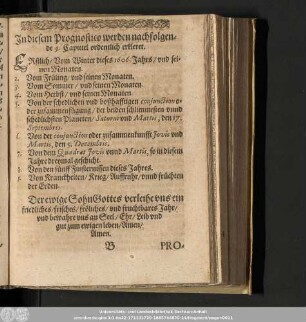 In diesem Prognostico werden nachfolgen-
de 9. Capitel ordentlich erkleret.
ERstlich/ Vom Winter dieses 1606. Jahrs/ vnd sei-
nen Monaten
2. Vom Früling, vnd seinen Monaten.
3. Vom Sommer/ vnd seinen Monaten
4. Vom Herbst/ vnd seinen Monaten
5. Von der schedlichen vnd boßhafftigen conjunction
der zusammenfügung/ der beiden schlimmesten vnnd
schedlichsten Planeten/ Saturni vnd Martis, den 17.
Septembris.
6. Von der conjunction oder zusammenkunfft Jovis vnd
Martis, den 5. Decembris.
7. Von dem Quadrat Jovis vnnd Martis, so in diesem
Jahre dreimal geschicht.
8. Von den fünff Finsternissen dieses Jahres.
9. Von Kranckheiten/ Krieg/ Auffrohr/ vnnd früchten
der Erden.
Der ewige Sohn Gottes verleihe vns ein
friedliches/ frisches/ fröliches/ vnd fruchtbares Jahr/
vnd bewahre vns an Seel/ Ehr/ Leib vnd
gut zum ewigen leben/ Amen/
Amen.
B PRO-